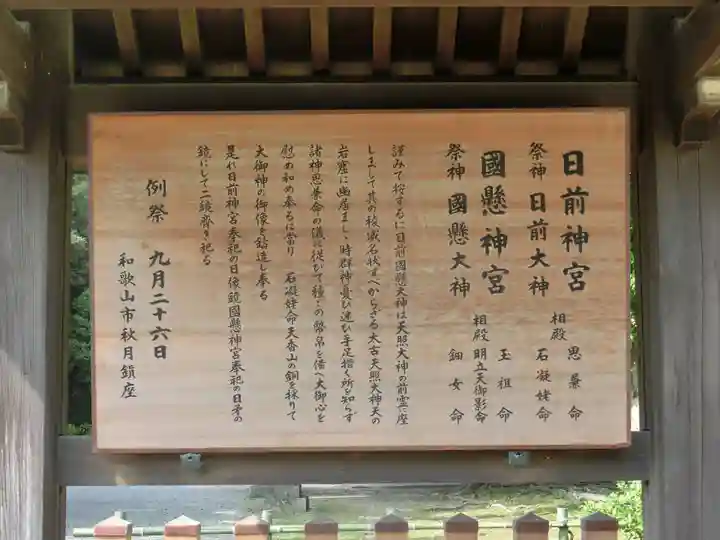 日前神宮
祭神 日前大神
相殿 思兼命
石凝姥命
國懸神宮
祭神 國懸大神
相殿 玉祖命
明立天御影命
鈿女命
謹みて按ずるに日前國懸大神は天照大神の前霊に座
しまして其の稜威名状すべからざる太古天照大神天の
岩窟に幽居ましゝ時群神憂ひ迷ひ手足措く所を知らず
諸神思兼命の議に從ひて種々の幣帛を備へ大御心を
慰め和め奉るに當り 石凝姥命天香山の銅を採りて
大御神の御像を鋳造し奉る
是れ日前神宮奉祀の日像鏡國懸神宮奉祀の日矛の
鏡にして二鏡齊き祀る
例祭 九月二十六日
和歌山市秋月鎮座